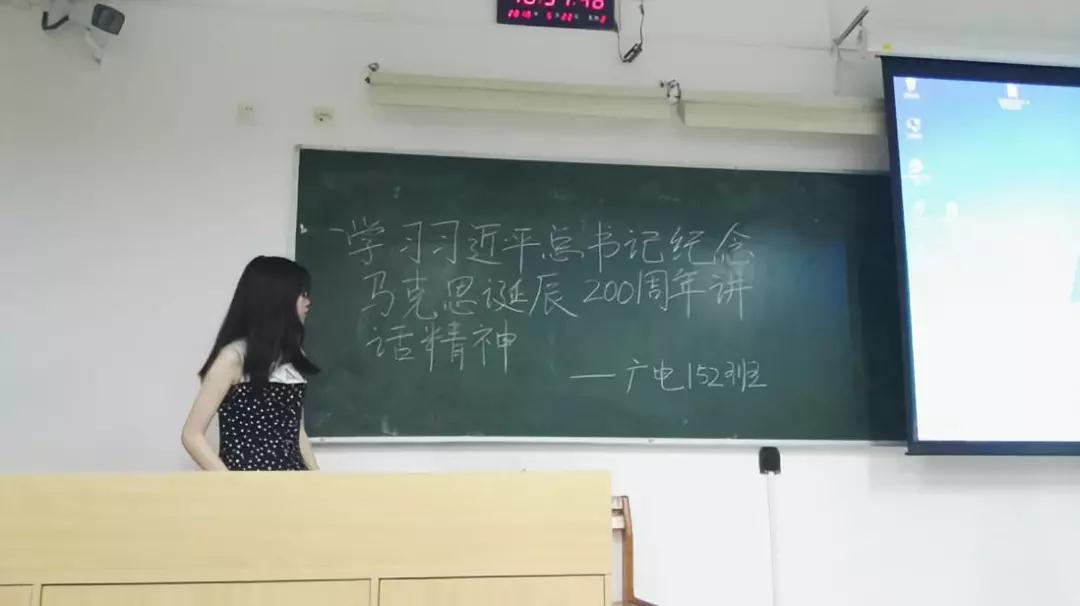 学习习近平总书记纪念
马克思诞辰200周年讲
话精神
—广电152班